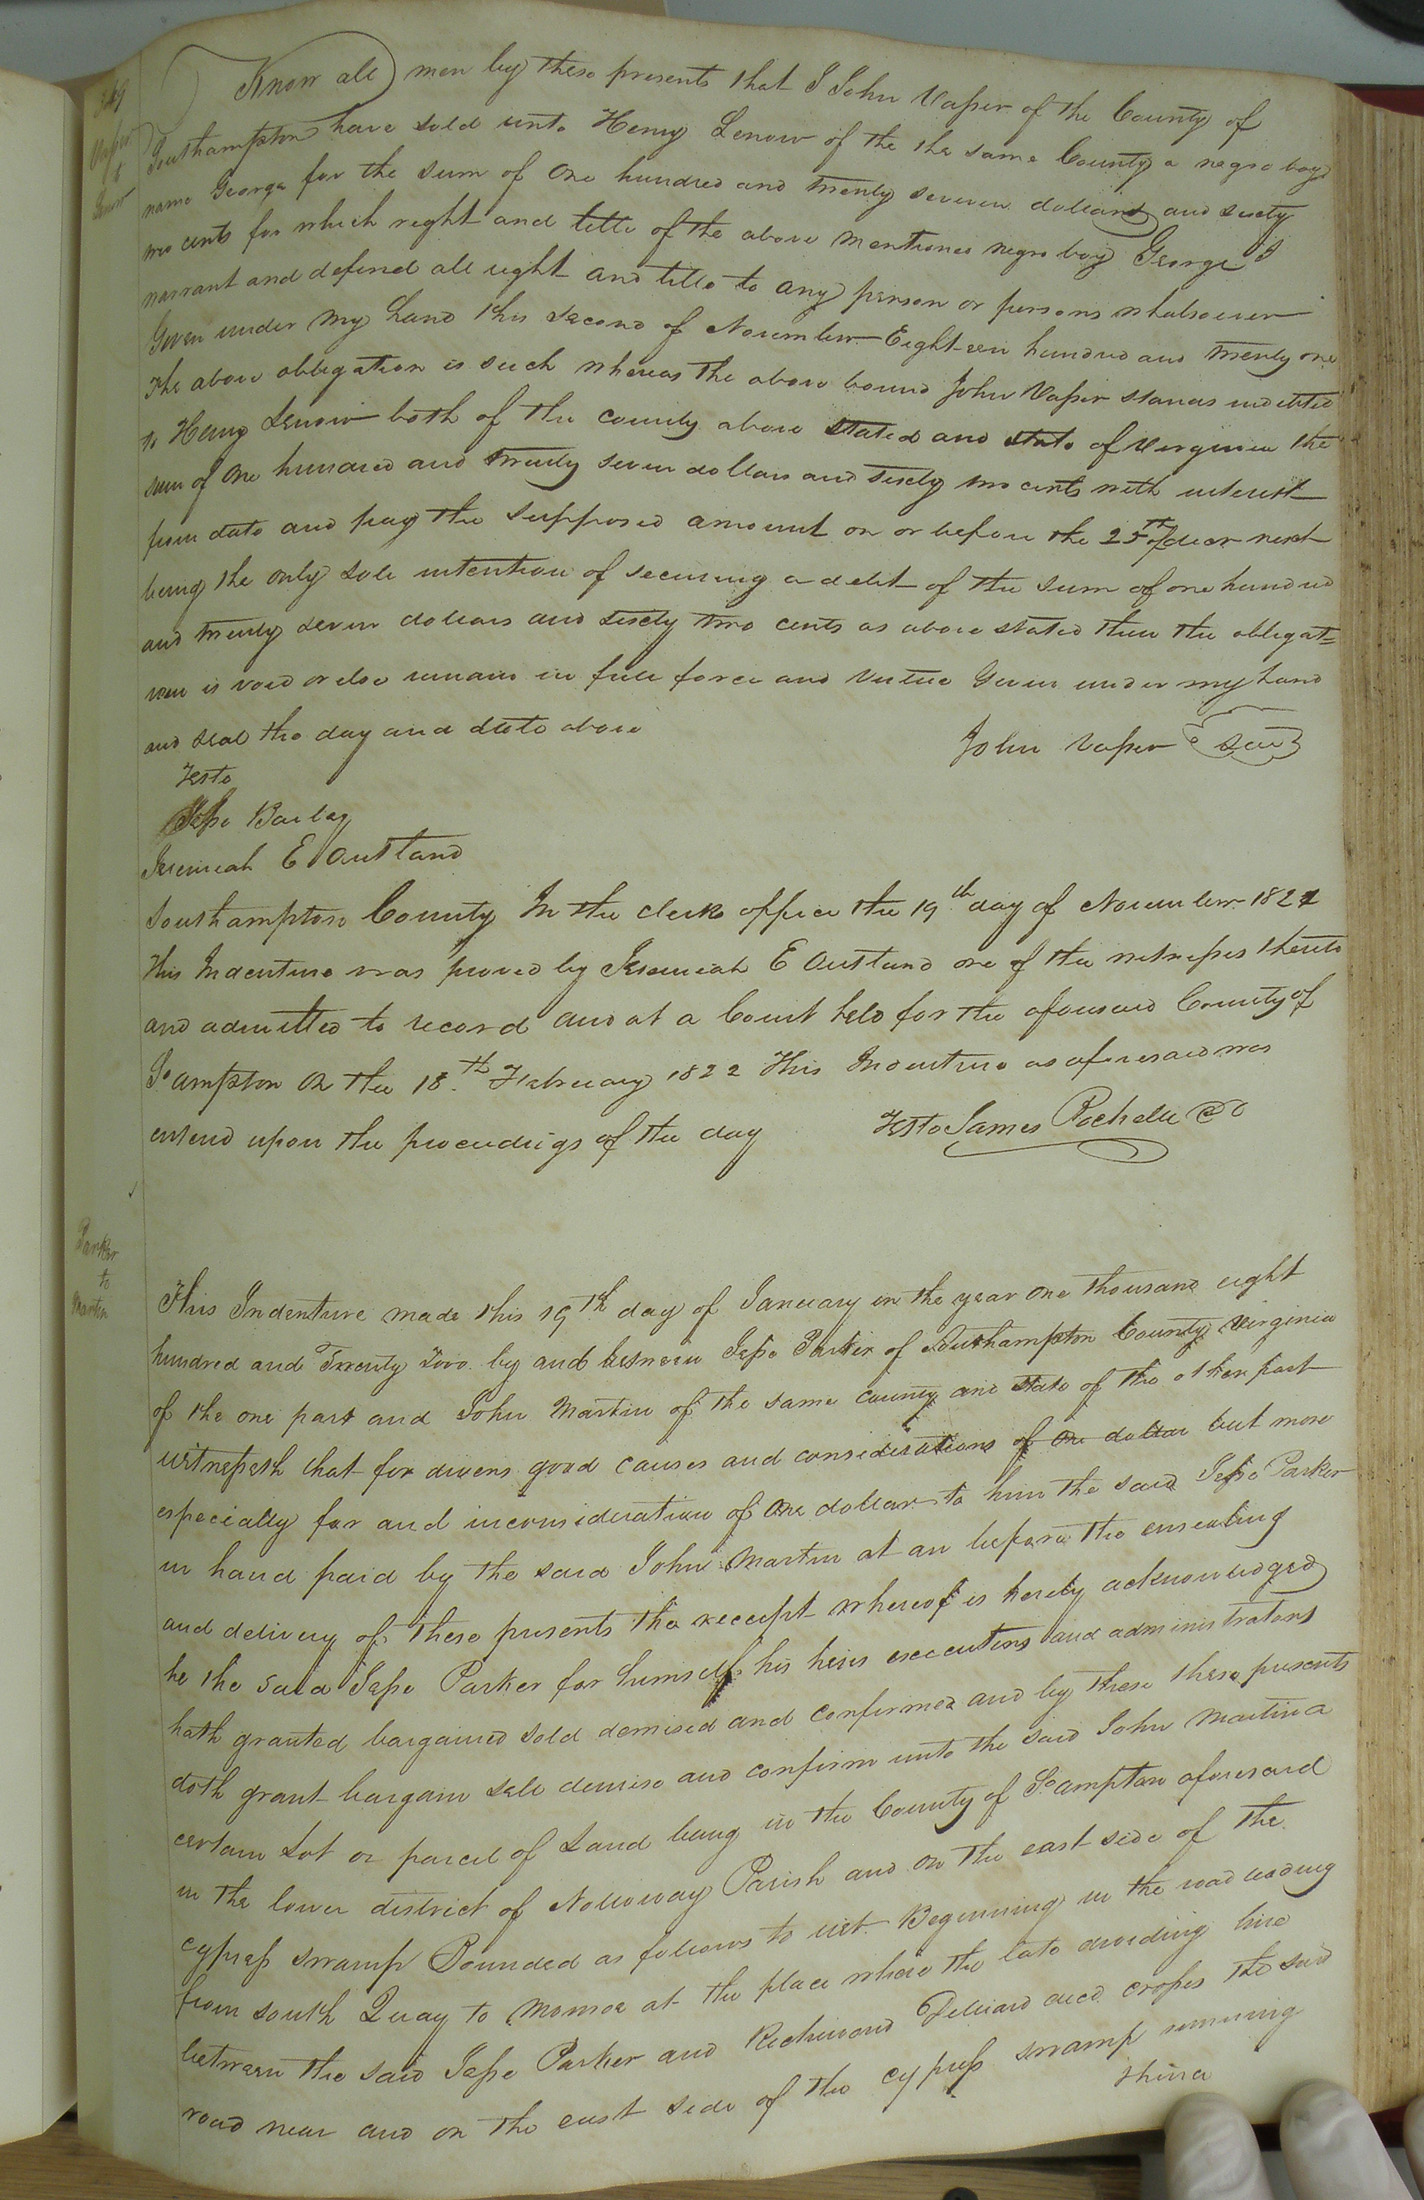 349
Vaser
to
Lenow
Know all men by these presents that I John Vaser of the County of
Southampton have sold unto Henry Lenow of the the same County a negro boy
name George for the sum of One hundred and twenty seven dollars and sixty
two cents for which right and title of the above mentioned negro boy George I
warrant and defend all right and title to any person or persons whatsoever
Given under my hand this second of November Eighteen hundred and twenty one
The above obligation is such whereas the above bound John Vaser stands indebted
to Henry Lenow both of the county above stated and state of Virginia the
sum of One hundred and twenty seven dollars and sixty two cents with interest
from date and pay the supposed amount on or before the 25th of decr next
being the only sole intention of securing a debt of the sum of one hundred
and twenty seven dollars and sixty two cents as above stated then the obligat=
ion is void or else remain in full force and virtue Given under my hand
and seal the day and date above
John Vaser seal
Teste
Jesse Bailey
Jeremiah E Outland
Southampton County In the clerks office the 19th day of November 1821
This Indenture was proved by Jeremiah E Outland one of the witnesses thereto
and admitted to record and at a Court held for the aforesaid County of
So ampton on the 18th February 1822 This Indenture as aforesaid was
enterd upon the proceedings of the day
Teste James Rochelle CC
Parker
to
Martin
This Indenture made this 19th day of January in the year One thousand eight
hundred and Twenty Two by and between Jesse Parker of Southampton County Virginia
of the one part and John Martin of the same county and state of the other part
witnesseth that for divers good causes and considerations of One dollar but more
especially for and inconsideration of One dollar to him the said Jesse Parker
in hand paid by the said John Martin at an before the ensealing
and delivery of these presents the receipt whereof is hereby acknowledged
he the said Jesse Parker for himself his heirs executors and administrators
hath granted bargained sold demised and confirmed and by these these presents
doth grant bargain sele demise and confirm unto the said John Martin a
certain Lot or parcel of Land being in the County of So ampton aforesaid
in the lower district of Nottoway Parish and on the east side of the
cypress swamp Bounded as follows to wit Beginning in the road leading
from South Quay to Monroe at the place where the late dividing line
between the said Jesse Parker and Richmond decd crosses the said
road near and on the east side of the cypress swamp running
thina